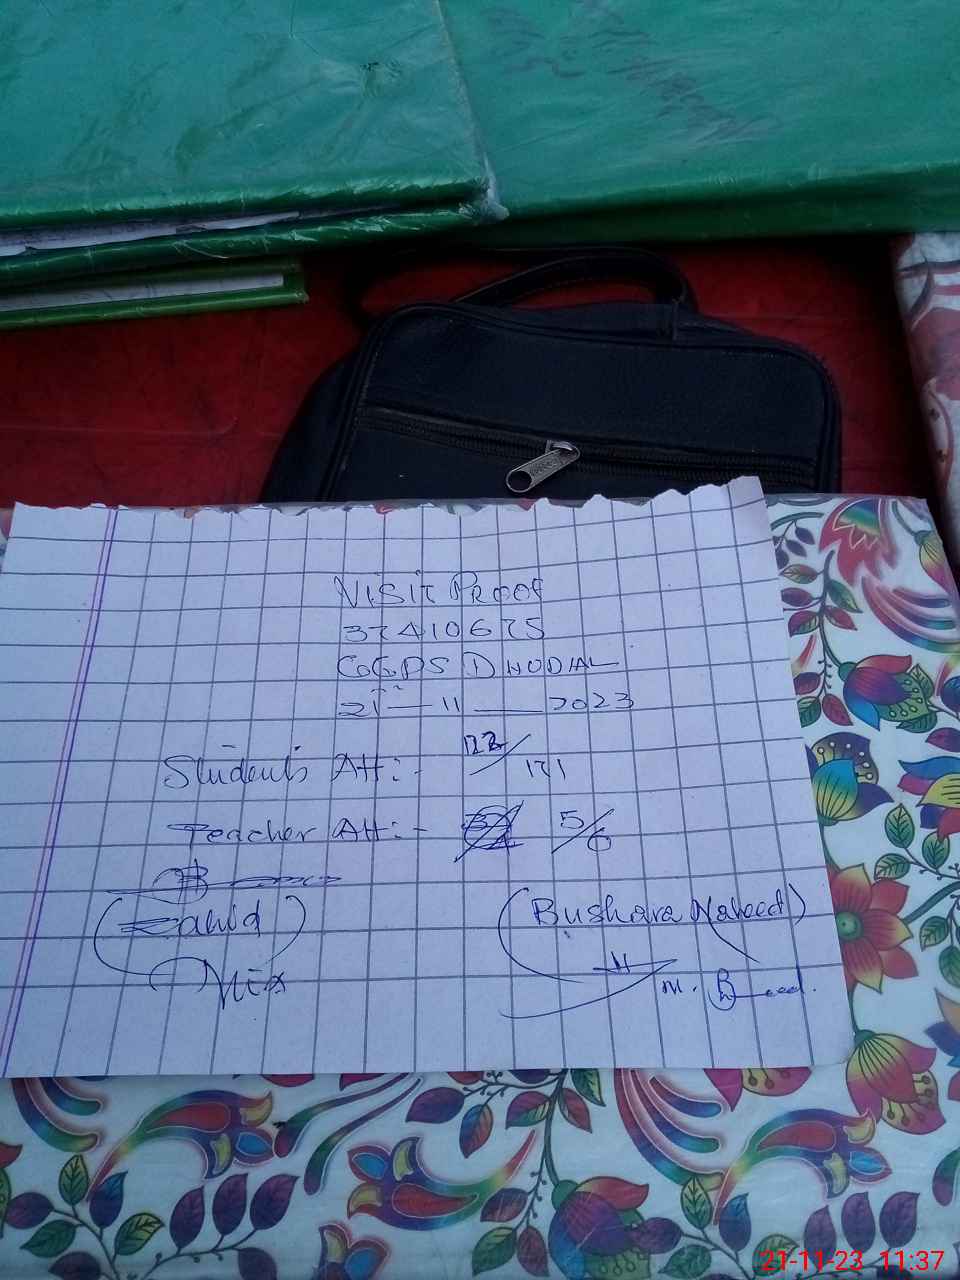 VISIT PROOF
37410675
GGPS DHODIAL
21-11-2023
Students Att:-
171
Teacher Att:- 5/6
(Zahid)
(Bushara Naheed)
21-11-23 11:37